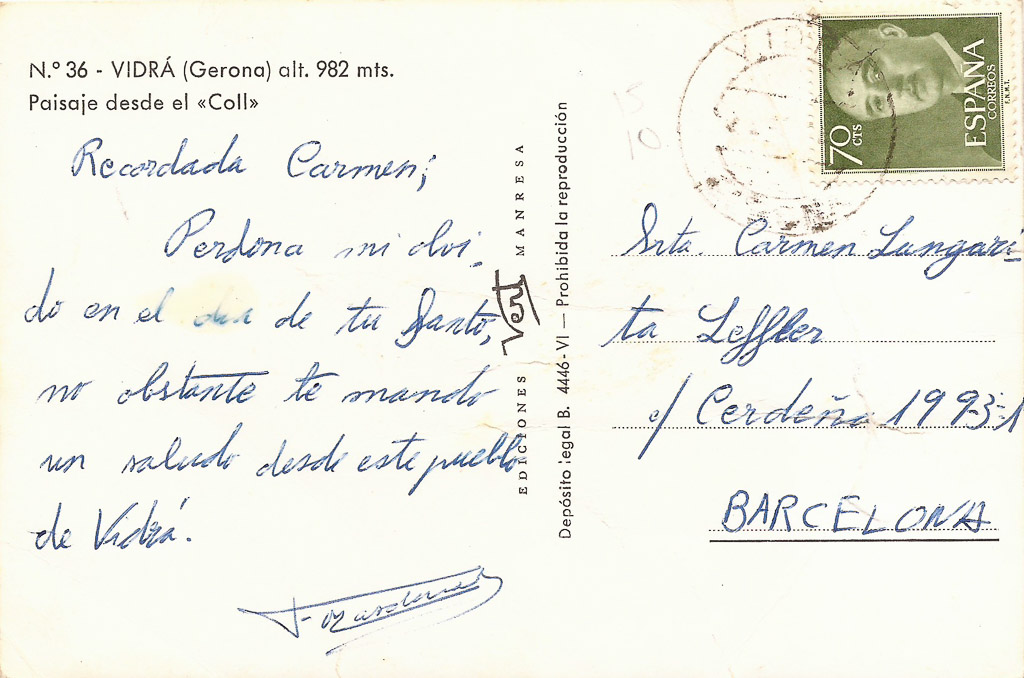 N.º 36 - VIDRÁ (Gerona) alt. 982 mts.
Paisaje desde el «Coll»
Recordada Carmen;
Perdona mi olvi-
do en el dia de tu Santo,
no obstante te mando
un saludo desde este pueblo
de Vidrá.
EDICIONES Vert MANRESA
Depósito legal B. 4446-VI — Prohibida la reproducción
15
10
70 CTS
ESPAÑA
CORREOS
F.N.M.T.
Srta. Carmen Lungari-
ta Leffler
c/ Cerdeña 199-3-1
BARCELONA